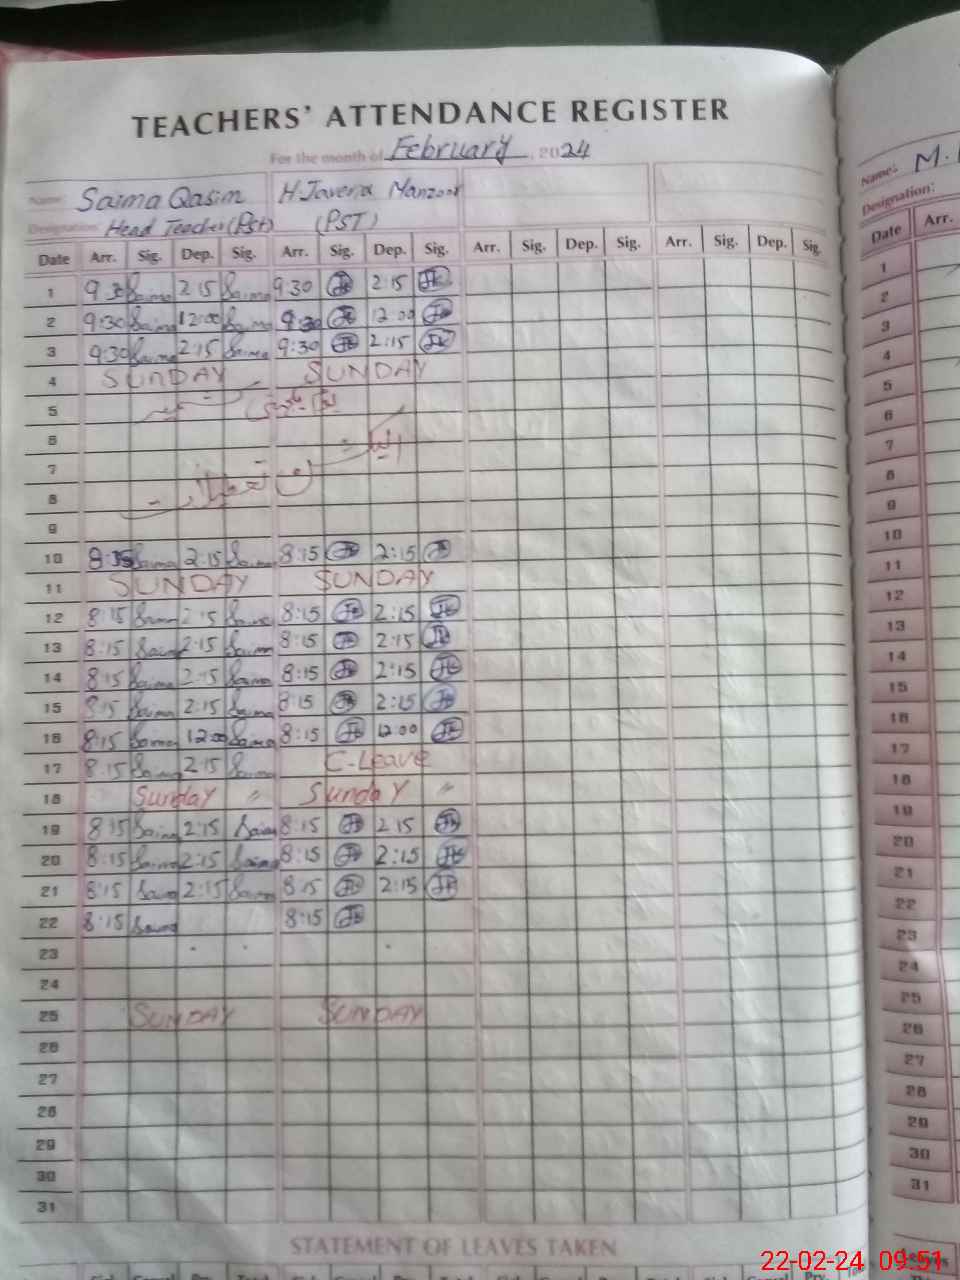 TEACHERS' ATTENDANCE REGISTER
For the month of February, 2024
Name: Saima Qasim H. Javeria Manzoor
Designation: Head Teacher (Pst) (PST)
Date Arr. Sig. Dep. Sig. Arr. Sig. Dep. Sig. Arr. Sig. Dep. Sig. Arr. Sig. Dep. Sig.
1 9:30 Saima 2:15 Saima 9:30 2:15
2 9:30 Saima 12:00 Saima 9:30 12:00
3 9:30 Saima 2:15 Saima 9:30 2:15
4 SUNDAY SUNDAY
5
6
7
8
9
10 Saima 2:15 Saima 8:15 2:15
11 SUNDAY SUNDAY
12 8:15 Saima 2:15 Saima 8:15 2:15
13 8:15 Saima 2:15 Saima 8:15 2:15
14 8:15 Saima 2:15 Saima 8:15 2:15
15 8:15 Saima 2:15 Saima 8:15 2:15
16 8:15 Saima 12:00 Saima 8:15 12:00
17 8:15 Saima 2:15 Saima C-Leave
18 Sunday " Sunday "
19 8:15 Saima 2:15 Saima 8:15 2:15
20 8:15 Saima 2:15 Saima 8:15 2:15
21 8:15 Saima 2:15 Saima 8:15 2:15
22 8:15 Saima 8:15
23
24
25 SUNDAY SUNDAY
26
27
28
29
30
31
STATEMENT OF LEAVES TAKEN
Name: M.
Designation:
Date Arr.
1
2
3
4
5
6
7
8
9
10
11
12
13
14
15
16
17
18
19
20
21
22
23
24
25
26
27
28
29
30
31
Leaves
22-02-24 09:51